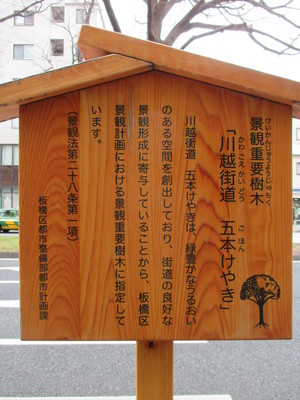 けいかんじゅうようじゅもく
景観重要樹木
かわごえかいどう ごほん
「川越街道 五本けやき」
川越街道 五本けやきは、緑豊かなうるおい
のある空間を創出しており、街道の良好な
景観形成に寄与していることから、板橋区
景観計画における景観重要樹木に指定して
います。
（景観法第二十八条第一項）
板橋区都市整備部都市計画課